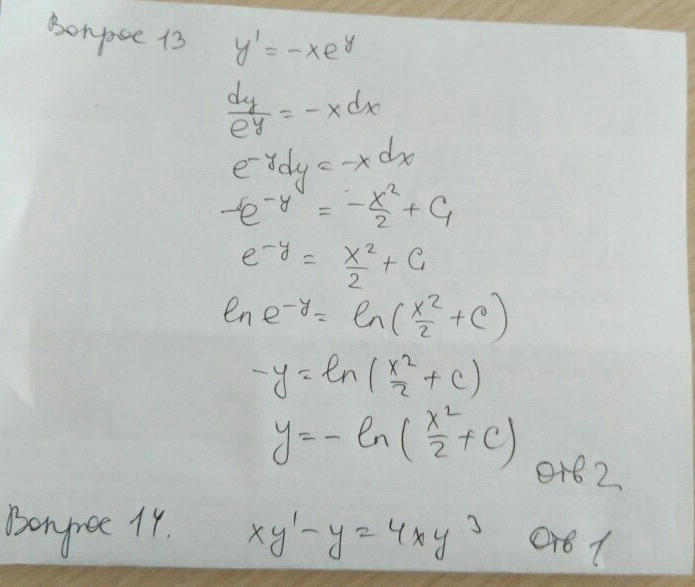 Вопрос 13 y' = -xe^y
dy/e^y = -x dx
e^-y dy = -x dx
-e^-y = -x²/2 + C₁
e^-y = x²/2 + C₁
ln e^-y = ln(x²/2 + C)
-y = ln(x²/2 + C)
y = - ln(x²/2 + C)
Отв 2
Вопрос 14. xy' - y = 4xy³ Отв 1